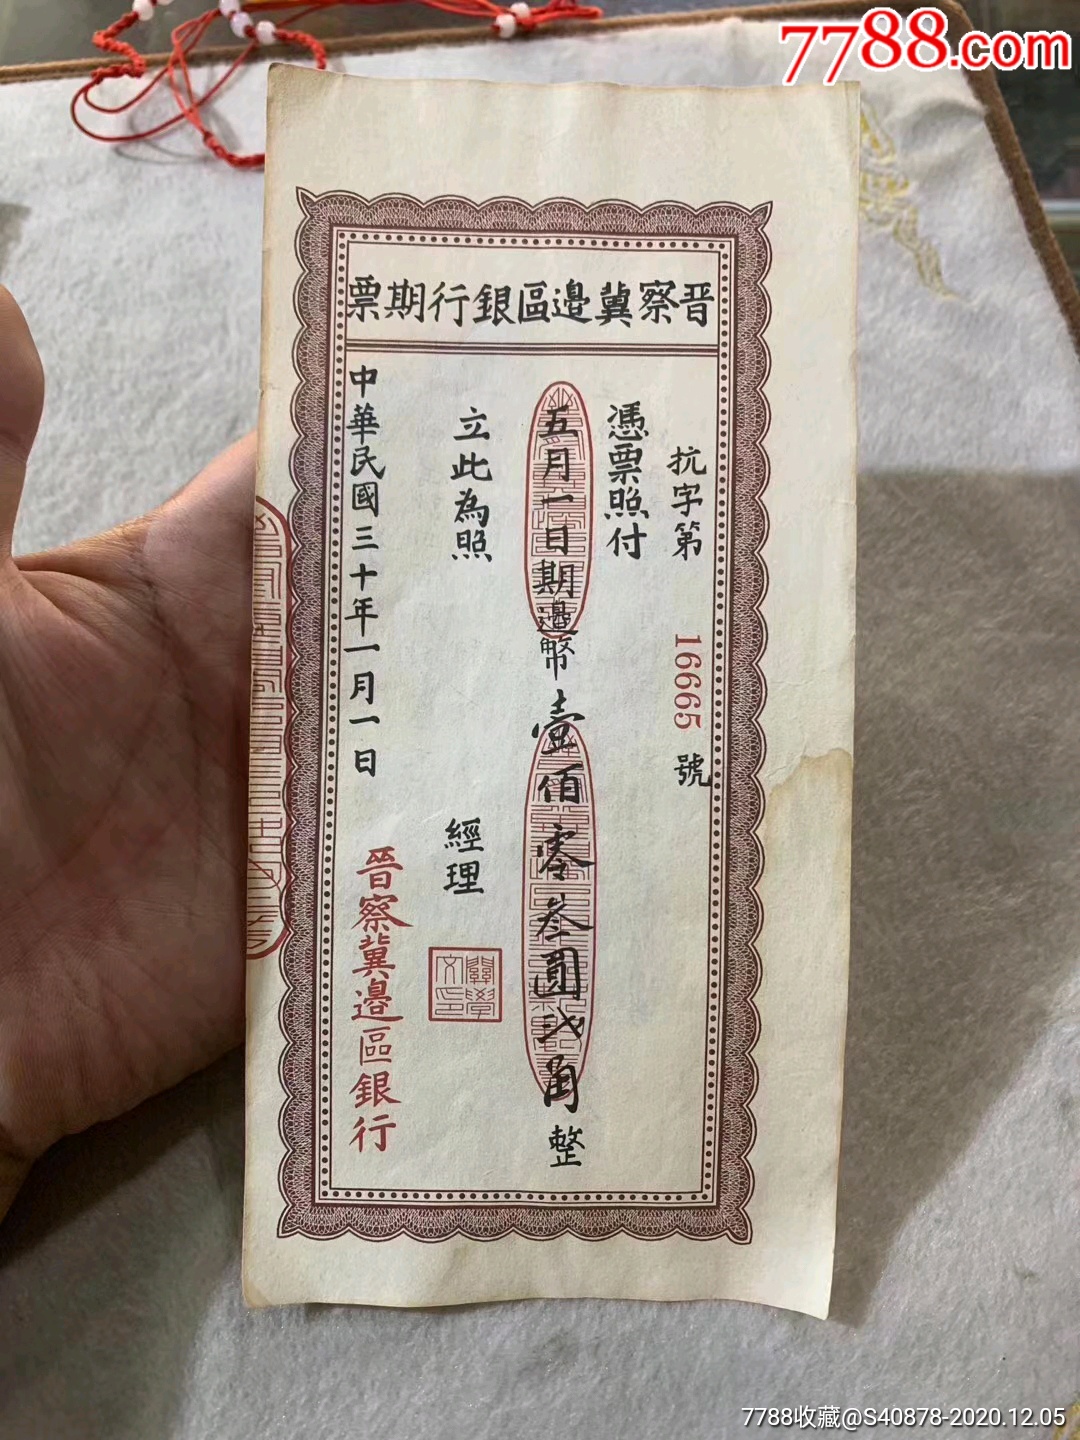 7788.com
晋察冀邊區銀行期票
抗字第 16665 號
憑票照付
五月一日期邊幣壹佰零叁圓弍角整
立此為照
經理
關學文印
中華民國三十年一月一日
晉察冀邊區銀行
7788收藏@S40878-2020.12.05